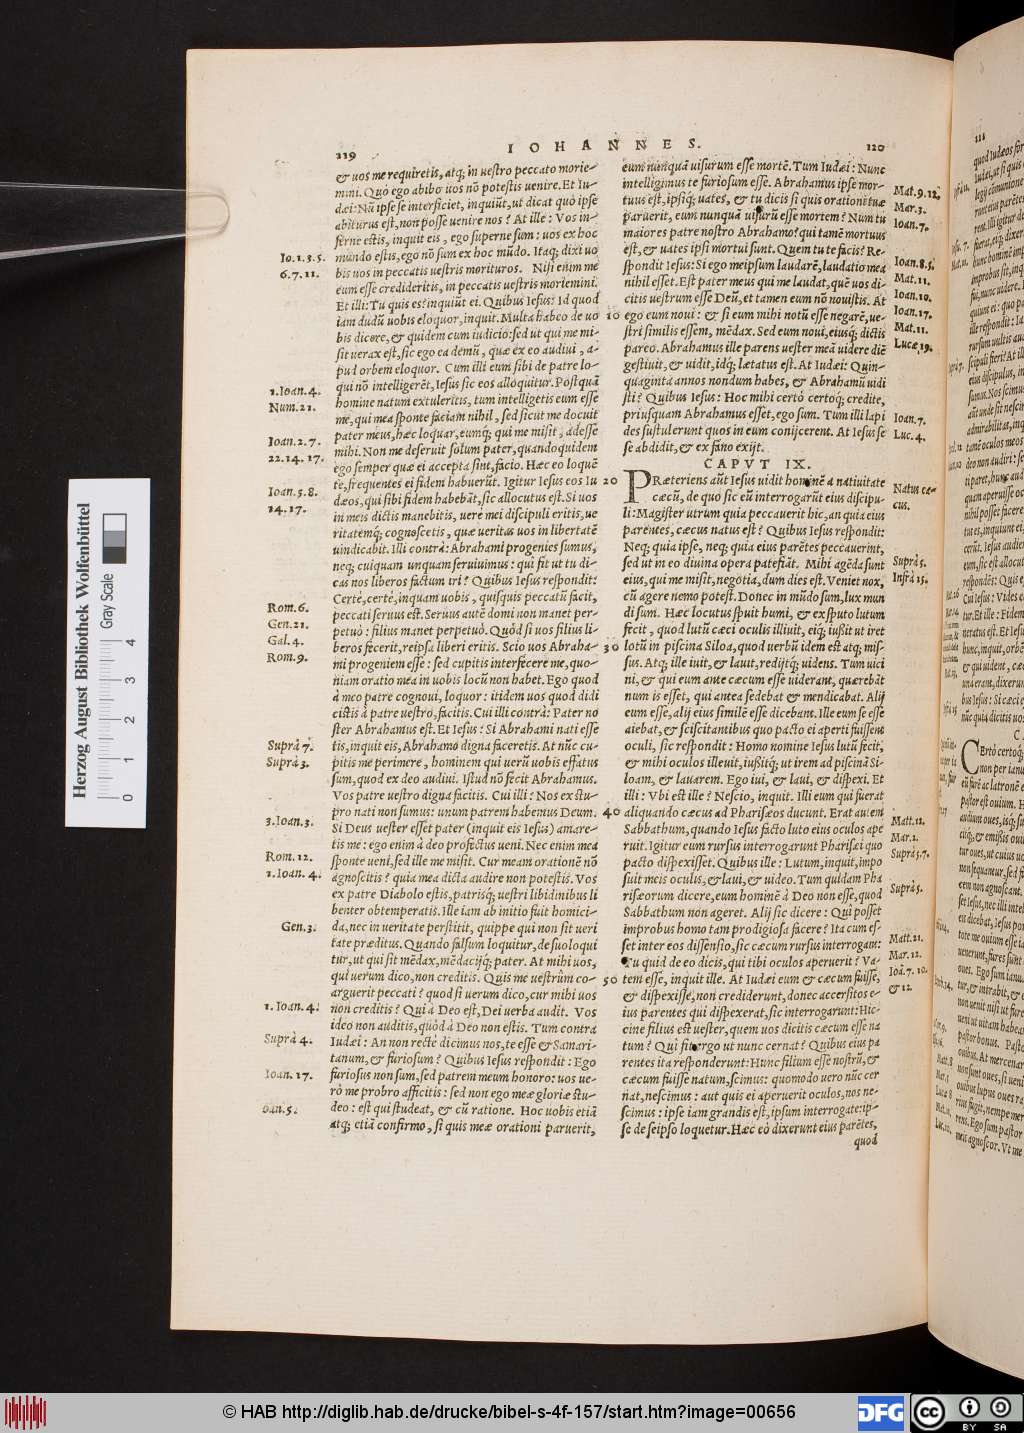 IOHANNES.
119
& uos me requiretis, atq; in uestro peccato morie-
mini. Quò ego abibo uos nō potestis uenire. Et Iu-
dæi: Nū ipse se interficiet, inquiūt, ut dicat quò ipse
abiturus est, non posse uenire nos? At ille: Vos in-
fernè estis, inquit eis, ego supernè sum: uos ex hoc
mūndo estis, ego nō sum ex hoc mūdo. Itaq; dixi uo
bis uos in peccatis uestris morituros. Nisi enim me
eum esse credideritis, in peccatis uestris moriemini.
Et illi: Tu quis es? inquiūt ei. Quibus Iesus: Id quod
iam dudū uobis eloquor, inquit. Multa habeo de uo
bis dicere, & quidem cum iudicio: sed ut qui me mi-
sit uerax est, sic ego ea demū, quæ ex eo audiui, a-
pud orbem eloquor. Cum illi eum sibi de patre lo-
qui nō intelligerēt, Iesus sic eos alloquitur. Postquā
homine natum extuleritis, tum intelligetis eum esse
me, qui mea sponte faciam nihil, sed sicut me docuit
pater meus, hæc loquar, eumq; qui me misit, adesse
mihi. Non me deseruit solum pater, quandoquidem
ego semper quæ ei accepta sint, facio. Hæc eo loquē
te, frequentes ei fidem habuerūt. Igitur Iesus eos Iu
dæos, qui sibi fidem habebāt, sic allocutus est. Si uos
in meis dictis manebitis, uerè mei discipuli eritis, ue
ritatemq; cognoscetis, quæ ueritas uos in libertatē
uindicabit. Illi contrà: Abrahami progenies sumus,
neq; cuiquam unquam seruiuimus: quì fit ut tu di-
cas nos liberos factum iri? Quibus Iesus respondit:
Certè, certè, inquam uobis, quisquis peccatū facit,
peccati seruus est. Seruus autē domi non manet per-
petuò: filius manet perpetuò. Quòd si uos filius li-
beros fecerit, reipsa liberi eritis. Scio uos Abraha-
mi progeniem esse: sed cupitis interficere me, quo-
niam oratio mea in uobis locū non habet. Ego quod
à meo patre cognoui, loquor: itidem uos quod didi
cistis à patre uestro, facitis. Cui illi contrà: Pater no
ster Abrahamus est. Et Iesus: Si Abrahami nati esse
tis, inquit eis, Abrahamo digna faceretis. At nūc cu-
pitis me perimere, hominem qui uerū uobis effatus
sum, quod ex deo audiui. Istud nō fecit Abrahamus.
Vos patre uestro digna facitis. Cui illi: Nos ex stu-
pro nati non sumus: unum patrem habemus Deum.
Si Deus uester esset pater (inquit eis Iesus) amare-
tis me: ego enim à deo profectus ueni. Nec enim mea
sponte ueni, sed ille me misit. Cur meam orationē nō
agnoscitis? quia mea dicta audire non potestis. Vos
ex patre Diabolo estis, patrisq; uestri libidinibus li
benter obtemperatis. Ille iam ab initio fuit homici-
da, nec in ueritate perstitit, quippe qui non sit ueri
tate præditus. Quando falsum loquitur, de suo loqui
tur, ut qui sit mēdax, mēdacijq; pater. At mihi uos,
qui uerum dico, non creditis. Quis me uestrûm co-
arguerit peccati? quod si uerum dico, cur mihi uos
non creditis? Qui à Deo est, Dei uerba audit. Vos
ideo non auditis, quòd à Deo non estis. Tum contra
Iudæi: An non rectè dicimus nos, te esse & Samari-
tanum, & furiosum? Quibus Iesus respondit: Ego
furiosus non sum, sed patrem meum honoro: uos ue-
rò me probro afficitis: sed non ego meæ gloriæ stu-
deo: est qui studeat, & cū ratione. Hoc uobis etiā
atq; etiā confirmo, si quis meæ orationi paruerit,
Io.1.3.5.
6.7.11.
1.Ioan.4.
Num.21.
Ioan.2.7.
22.14.17.
Ioan.5.8.
14.17.
Rom.6.
Gen.21.
Gal.4.
Rom.9.
Suprà 7.
Suprà 3.
3.Ioan.3.
Rom.12.
1.Ioan.4.
Gen.3.
1.Ioan.4.
Suprà 4.
Ioan.17.
oan.5.
10
20
30
40
50
120
eum nunquā uisurum esse mortē. Tum Iudæi: Nunc
intelligimus te furiosum esse. Abrahamus ipse mor-
tuus est, ipsiq; uates, & tu dicis si quis orationi tuæ
paruerit, eum nunquā uisurū esse mortem? Num tu
maior es patre nostro Abrahamo? qui tamē mortuus
est, & uates ipsi mortui sunt. Quem tu te facis? Re-
spondit Iesus: Si ego meipsum laudarē, laudatio mea
nihil esset. Est pater meus qui me laudat, quē uos di-
citis uestrum esse Deū, et tamen eum nō nouistis. At
ego eum noui: & si eum mihi notū esse negarē, ue-
stri similis essem, mēdax. Sed eum noui, eiusq; dictis
pareo. Abrahamus ille parens uester meā uidere diē
gestiuit, & uidit, idq; lætatus est. At Iudæi: Quin-
quaginta annos nondum habes, & Abrahamū uidi
sti? Quibus Iesus: Hoc mihi certò certoq; credite,
priusquam Abrahamus esset, ego sum. Tum illi lapi
des sustulerunt quos in eum conijcerent. At Iesus se
se abdidit, & ex fano exijt.
CAPVT IX.
PRæteriens aūt Iesus uidit hominē a natiuitate
cæcū, de quo sic eū interrogarūt eius discipu-
li: Magister utrum quia peccauerit hic, an quia eius
parentes, cæcus natus est? Quibus Iesus respondit:
Neq; quia ipse, neq; quia eius parētes peccauerint,
sed ut in eo diuina opera patefiāt. Mihi agēda sunt
eius, qui me misit, negotia, dum dies est. Veniet nox,
cū agere nemo potest. Donec in mūdo sum, lux mun
di sum. Hæc locutus spuit humi, & ex sputo lutum
fecit, quod lutū cæci oculis illiuit, eiq; iußit ut iret
lotū in piscina Siloa, quod uerbū idem est atq; mis-
sus. Atq; ille iuit, & lauit, redijtq; uidens. Tum uici
ni, & qui eum ante cæcum esse uiderant, quærebāt
num is esset, qui antea sedebat & mendicabat. Alij
eum esse, alij eius similē esse dicebant. Ille eum se esse
aiebat, & sciscitantibus quo pacto ei aperti fuissent
oculi, sic respondit: Homo nomine Iesus lutū fecit,
& mihi oculos illeuit, iußitq; ut irem ad piscinā Si-
loam, & lauarem. Ego iui, & laui, & dispexi. Et
illi: Vbi est ille? Nescio, inquit. Illi eum qui fuerat
aliquando cæcus ad Pharisæos ducunt. Erat autem
Sabbathum, quando Iesus facto luto eius oculos ape
ruit. Igitur eum rursus interrogarunt Pharisæi quo
pacto dispexisset. Quibus ille: Lutum, inquit, impo
suit meis oculis, & laui, & uideo. Tum quidam Pha
risæorum dicere, eum hominē à Deo non esse, quod
Sabbathum non ageret. Alij sic dicere: Quì posset
improbus homo tam prodigiosa facere? Ita cum es-
set inter eos dissensio, sic cæcum rursus interrogant:
Tu quid de eo dicis, qui tibi oculos aperuerit? Va-
tem esse, inquit ille. At Iudæi eum & cæcum fuisse,
& dispexisse, non crediderunt, donec accersitos e-
ius parentes qui dispexerat, sic interrogarunt: Hic-
cine filius est uester, quem uos dicitis cæcum esse na
tum? Quì fit ergo ut nunc cernat? Quibus eius pa
rentes ita responderunt: Hunc filium esse nostrū, &
cæcum fuisse natum, scimus: quomodo uero nūc cer
nat, nescimus: aut quis ei aperuerit oculos, nos ne-
scimus: ipse iam grandis est, ipsum interrogate: ip-
se de seipso loquetur. Hæc eò dixerunt eius parētes,
quod
Mat.9.12.
Mar.3.
Ioan.7.
Ioan.8.5.
Mat.11.
Ioan.10.
Ioan.17.
Mat.11.
Lucæ,19.
Ioan.7.
Luc.4.
Natus cæ-
cus.
Suprà 5.
Infrà 15.
Matt.12.
Mar.2.
Suprà 5.7.
Suprà 5.
Matt.21.
Mar.12.
Ioā.7.10.
& 12.
Herzog August Bibliothek Wolfenbüttel
Gray Scale
0 1 2 3 4
© HAB http://diglib.hab.de/drucke/bibel-s-4f-157/start.htm?image=00656
DFG
CC
BY SA